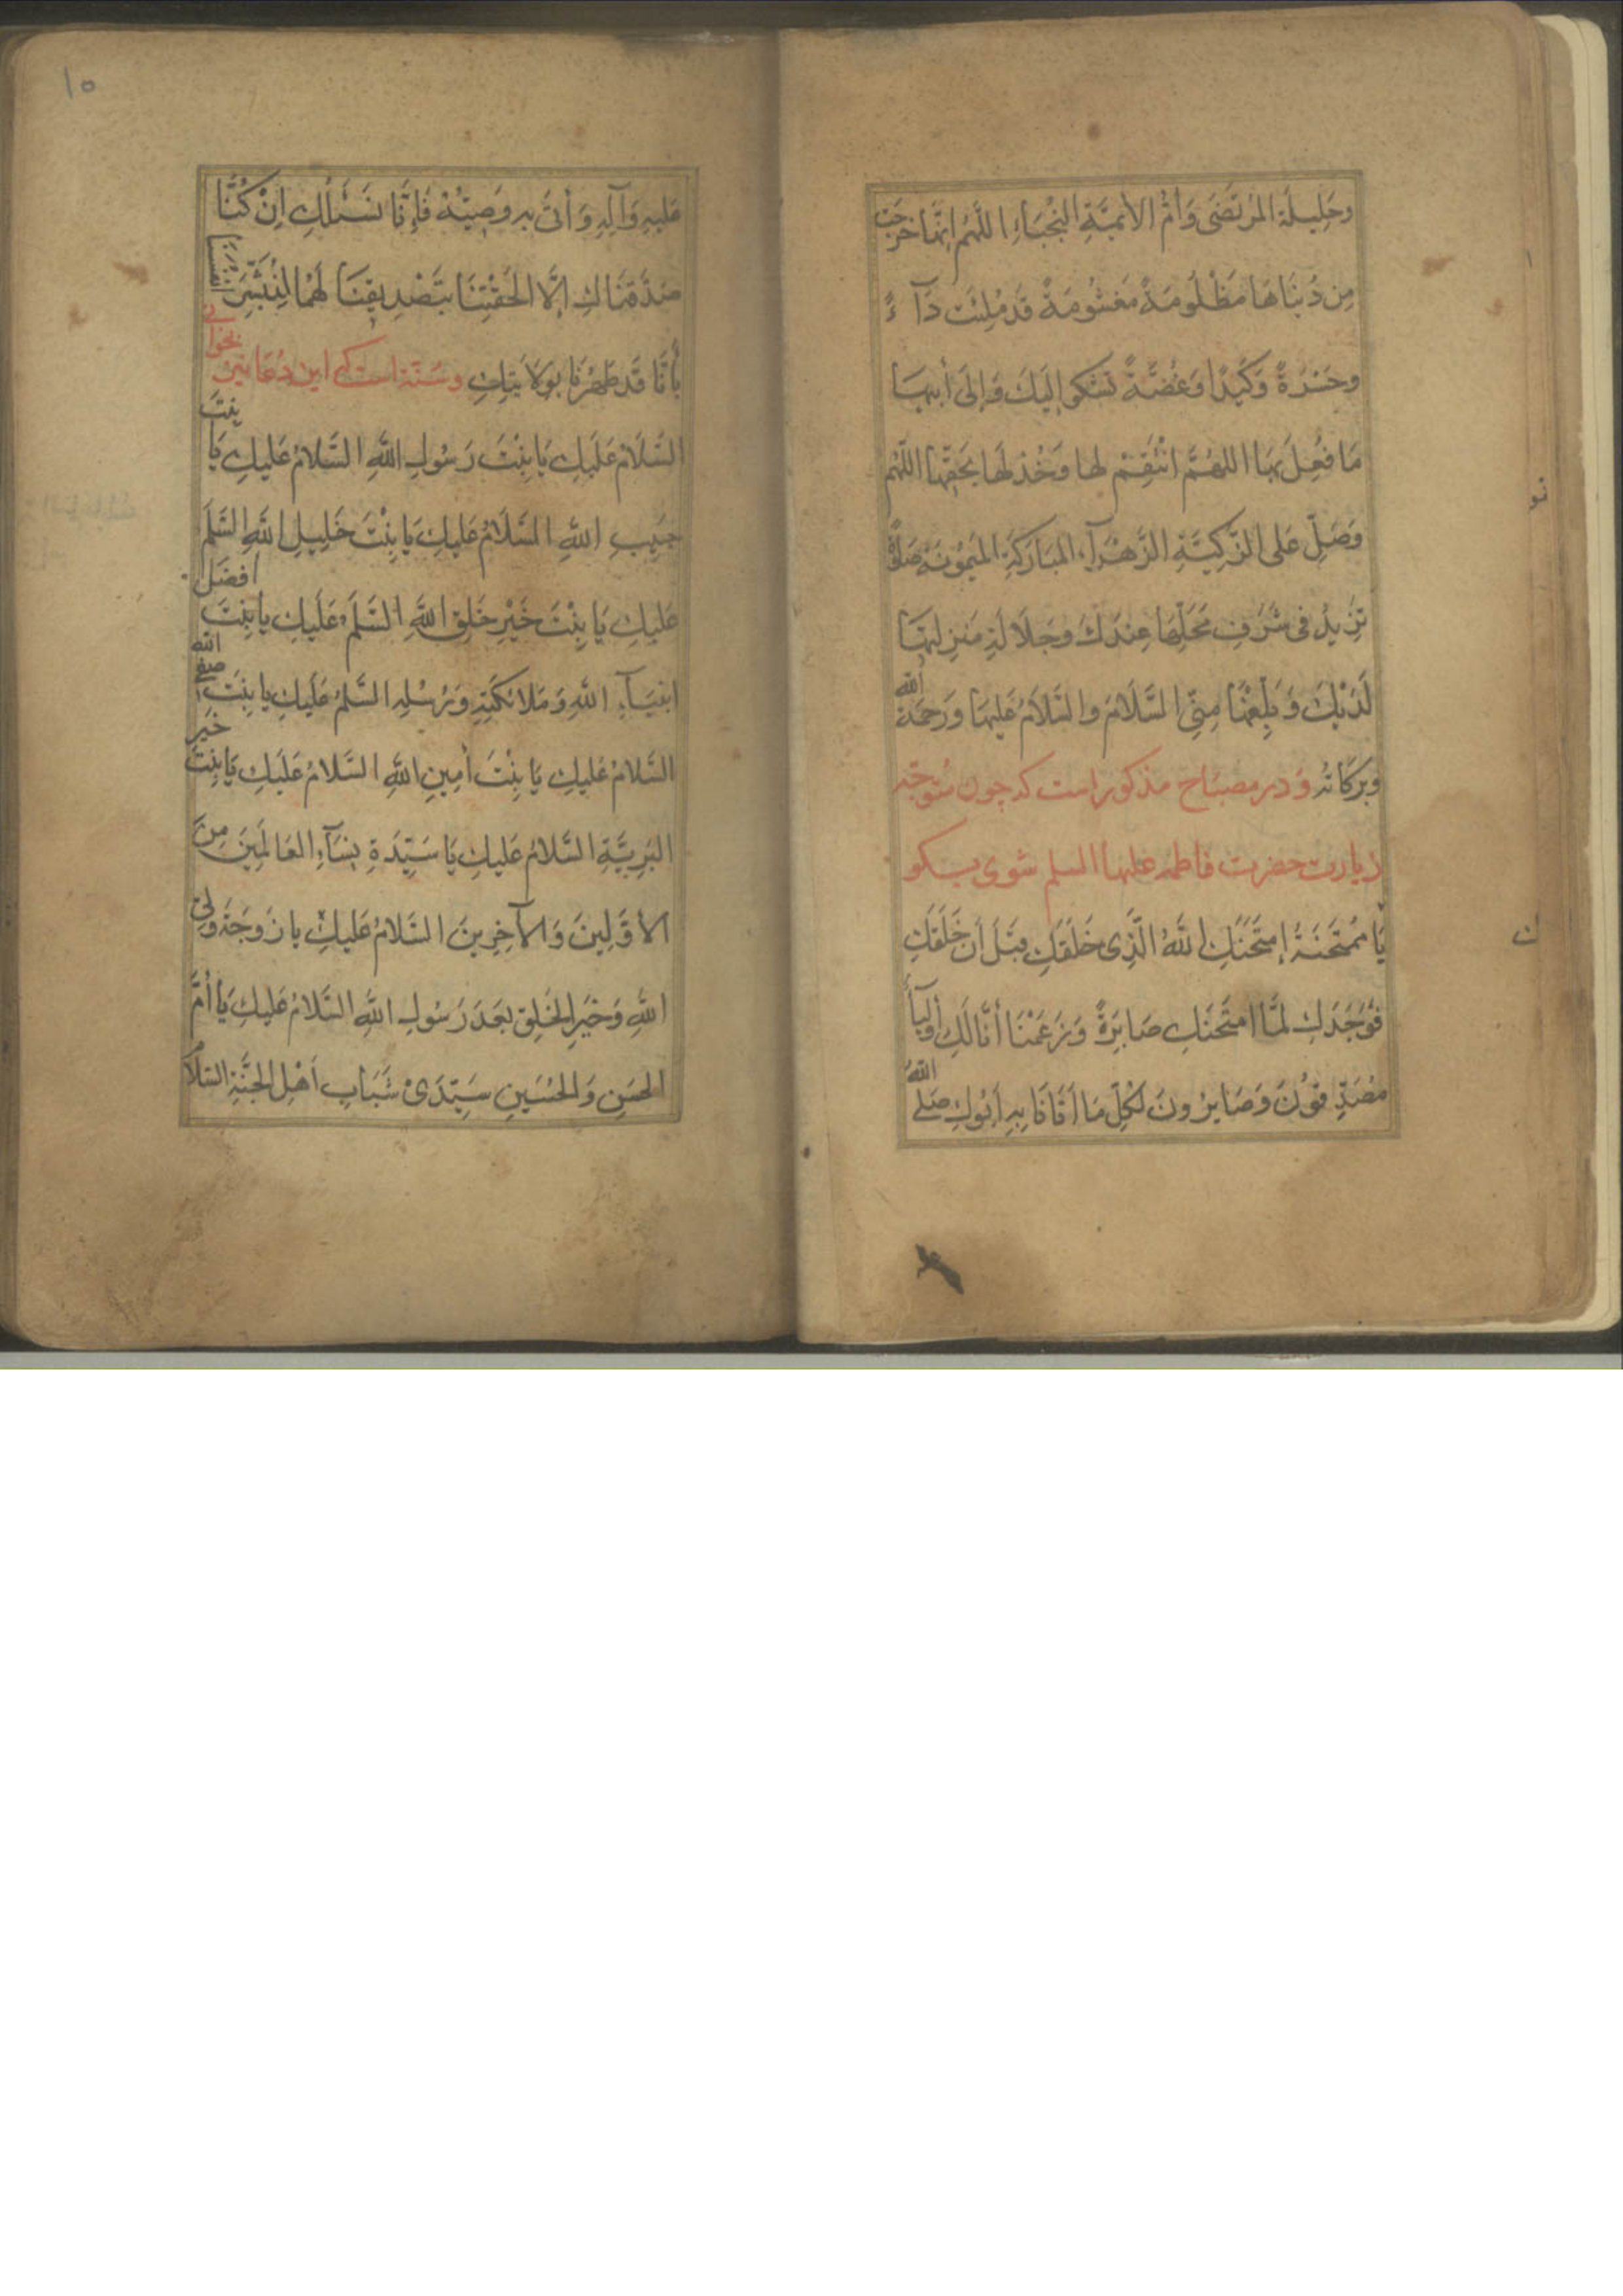 وحَلِيلَة المُرتَضَى وَأمِّ الأئمَّةِ النُجَبَاءِ اللَّهُم إنَّها خَرَجَت
مِن دُنيَاهَا مَظْلُومَةً مَغشُومَةً قَد مُلِئَت دَآءً
وحَسْرَةً وَكَمَدًا وَغُصَّةً تَشكو إلَيكَ وَإلَى أبيهَا
مَا فُعِلَ بهَا اللهُمَّ انْتَقِمْ لها وَخُذْ لَهَا بحَقِّها اللّهُم
وَصَلِّ عَلى الزَّكِيَّةِ الزَّهْرَآءِ المُبَارَكَةِ المَيمُونَةِ صَلوةً
تَزِيدُ في شَرَفِ مَحَلِّهَا عِندَكَ وجَلَالَةِ مَنزِلتهَا
لَدَيْكَ وَبَلِّغْهَا مِنِّي السَّلَامُ والسَّلَامُ عَليها وَرَحمَة الله
وبَركَاته وَدر مصبَاح مذكور است كه چون متوجّه
زيارت حضرت فاطمه عليها السلم شوى بكو
يَا مُمتَحَنَةُ إمتَحَنَكِ اللهُ الَّذِى خَلَقَكِ قَبلَ أن خَلَقَكِ
فَوَجَدَكِ لمَّا امتَحَنَكِ صَابِرَةً وَزَعَمْنَا أنَّا لَكِ أوليَآء
مُصَدِّقُونَ وَصَابِرُونَ لكُلِّ مَا أتَانَا بِهِ أبُوكِ صَلى اللهُ
عَليهِ وَآلِهِ وَأتىَ به وَصِيُّهُ فَإنَّا نَسْئَلُكِ اِنْ كُنَّا
صَدَّقنَاكِ إلَّا الحَقْتِنَا بتَصْدِيقِنَا لَهُمَا لِنُبَشِّرَ انفسنا
بأنّا قَد طَهُرنَا بوَلَايَتِكِ وسنّة است كه اين دعا نيز بخوانى
السَّلَامُ عَلَيكِ يَا بِنْتَ رَسُولِ اللَّهِ السَّلامُ عَليكِ يَا بنتَ
حَبيبِ اللَّهِ السَّلَامُ عَليكِ يَا بِنْتَ خَلِيلِ اللَّهِ السَّلَم
عَليكِ يَا بِنْتَ خَيْرِ خَلقِ اللَّهِ السَّلَم عَلَيكِ يا بنتَ افضَل
انبيَآءِ اللَّهِ وَمَلائكَتِهِ وَرُسُلِهِ السَّلمُ عَلَيكِ يا بنتَ صفى الله
السَّلامُ عَليكِ يَا بِنْتَ أمِينِ اللَّهِ السَّلامُ عَلَيكِ يَا بنتَ خَيرِ
البَرِيَّةِ السَّلامُ عَليكِ يَا سَيِّدَةِ نِسَآءِ العَالَمِينَ مِنَ
الأوَّلِينَ وَالآخِرِينَ السَّلامُ عَليكِ يا زَوجَة وَلىّ
اللَّهِ وَخَيرِ الخَلقِ بَعدَ رَسُولِ اللَّهِ السَّلامُ عَليكِ يَا أمَّ
الحَسَنِ وَالحُسَينِ سَيِّدَىْ شَبَابِ أهْلِ الجَنَّةِ السَّلامُ